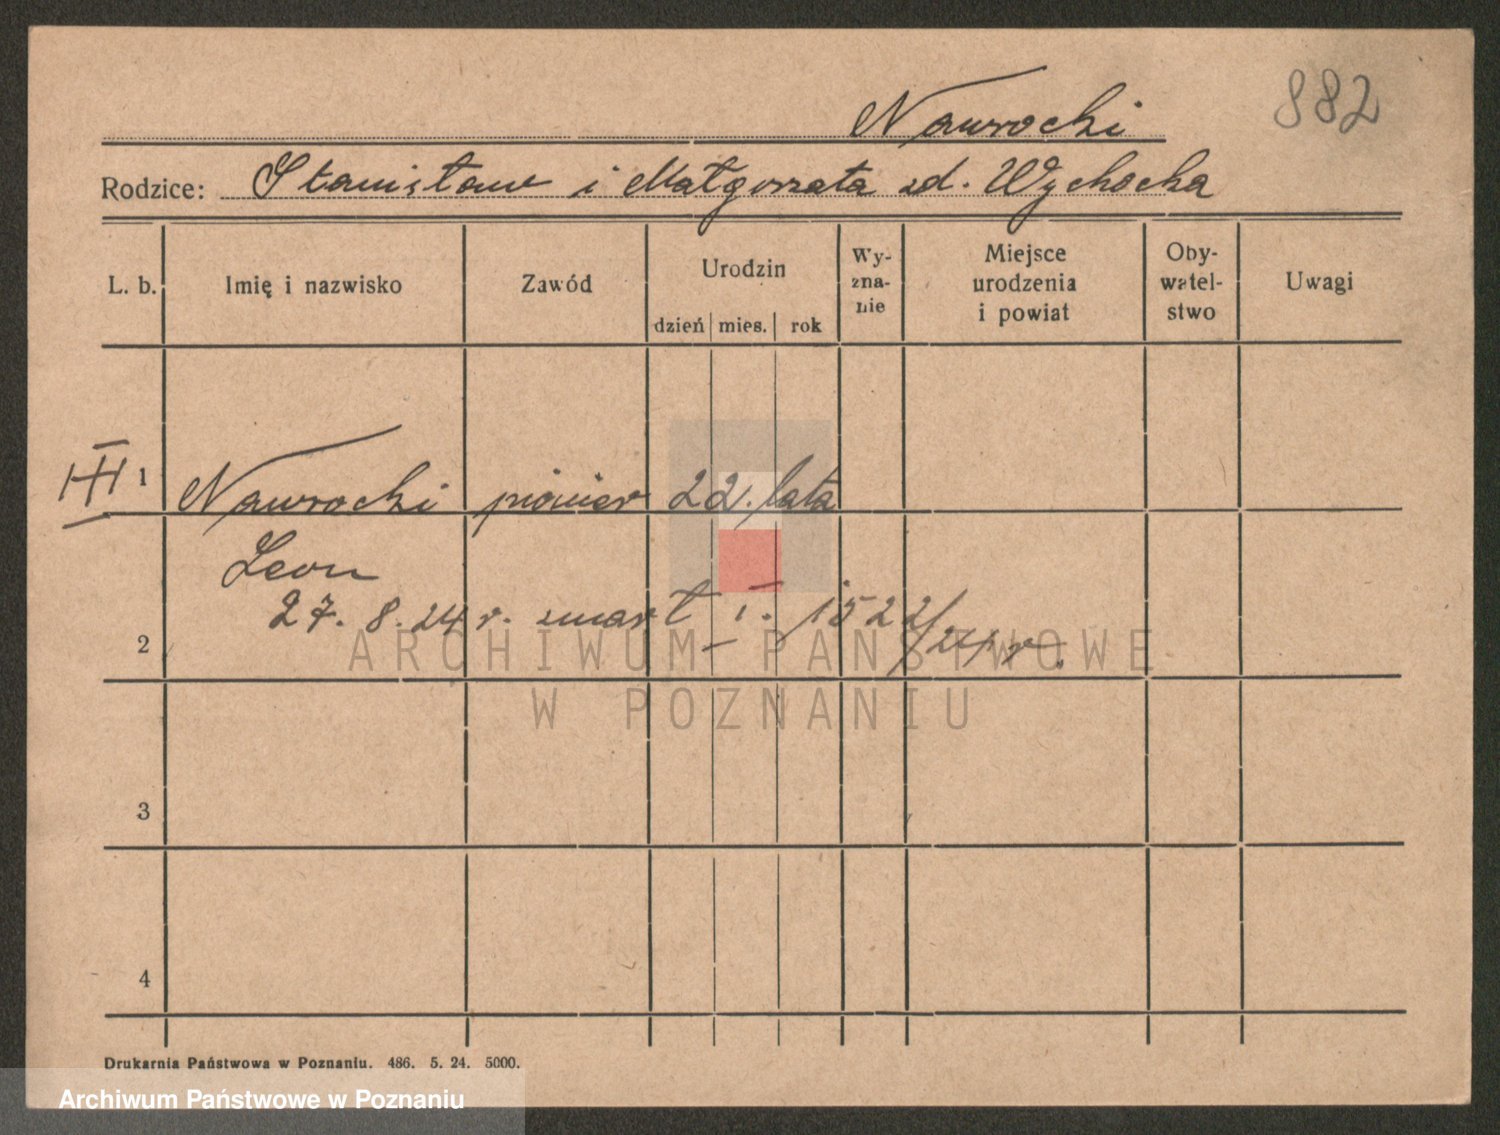 882
Nawrocki
Rodzice: Stanisław i Małgorzata zd. Wychocka
L. b. Imię i nazwisko Zawód Urodzin dzień mies. rok Wy-zna-nie Miejsce urodzenia i powiat Oby-watel-stwo Uwagi
1 Nawrocki pionier 22. lata
Leon
27. 8. 24 r. zmarł I. 1522/24 r.
2
ARCHIWUM PAŃSTWOWE
W POZNANIU
3
4
Drukarnia Państwowa w Poznaniu. 486. 5. 24. 5000.
Archiwum Państwowe w Poznaniu